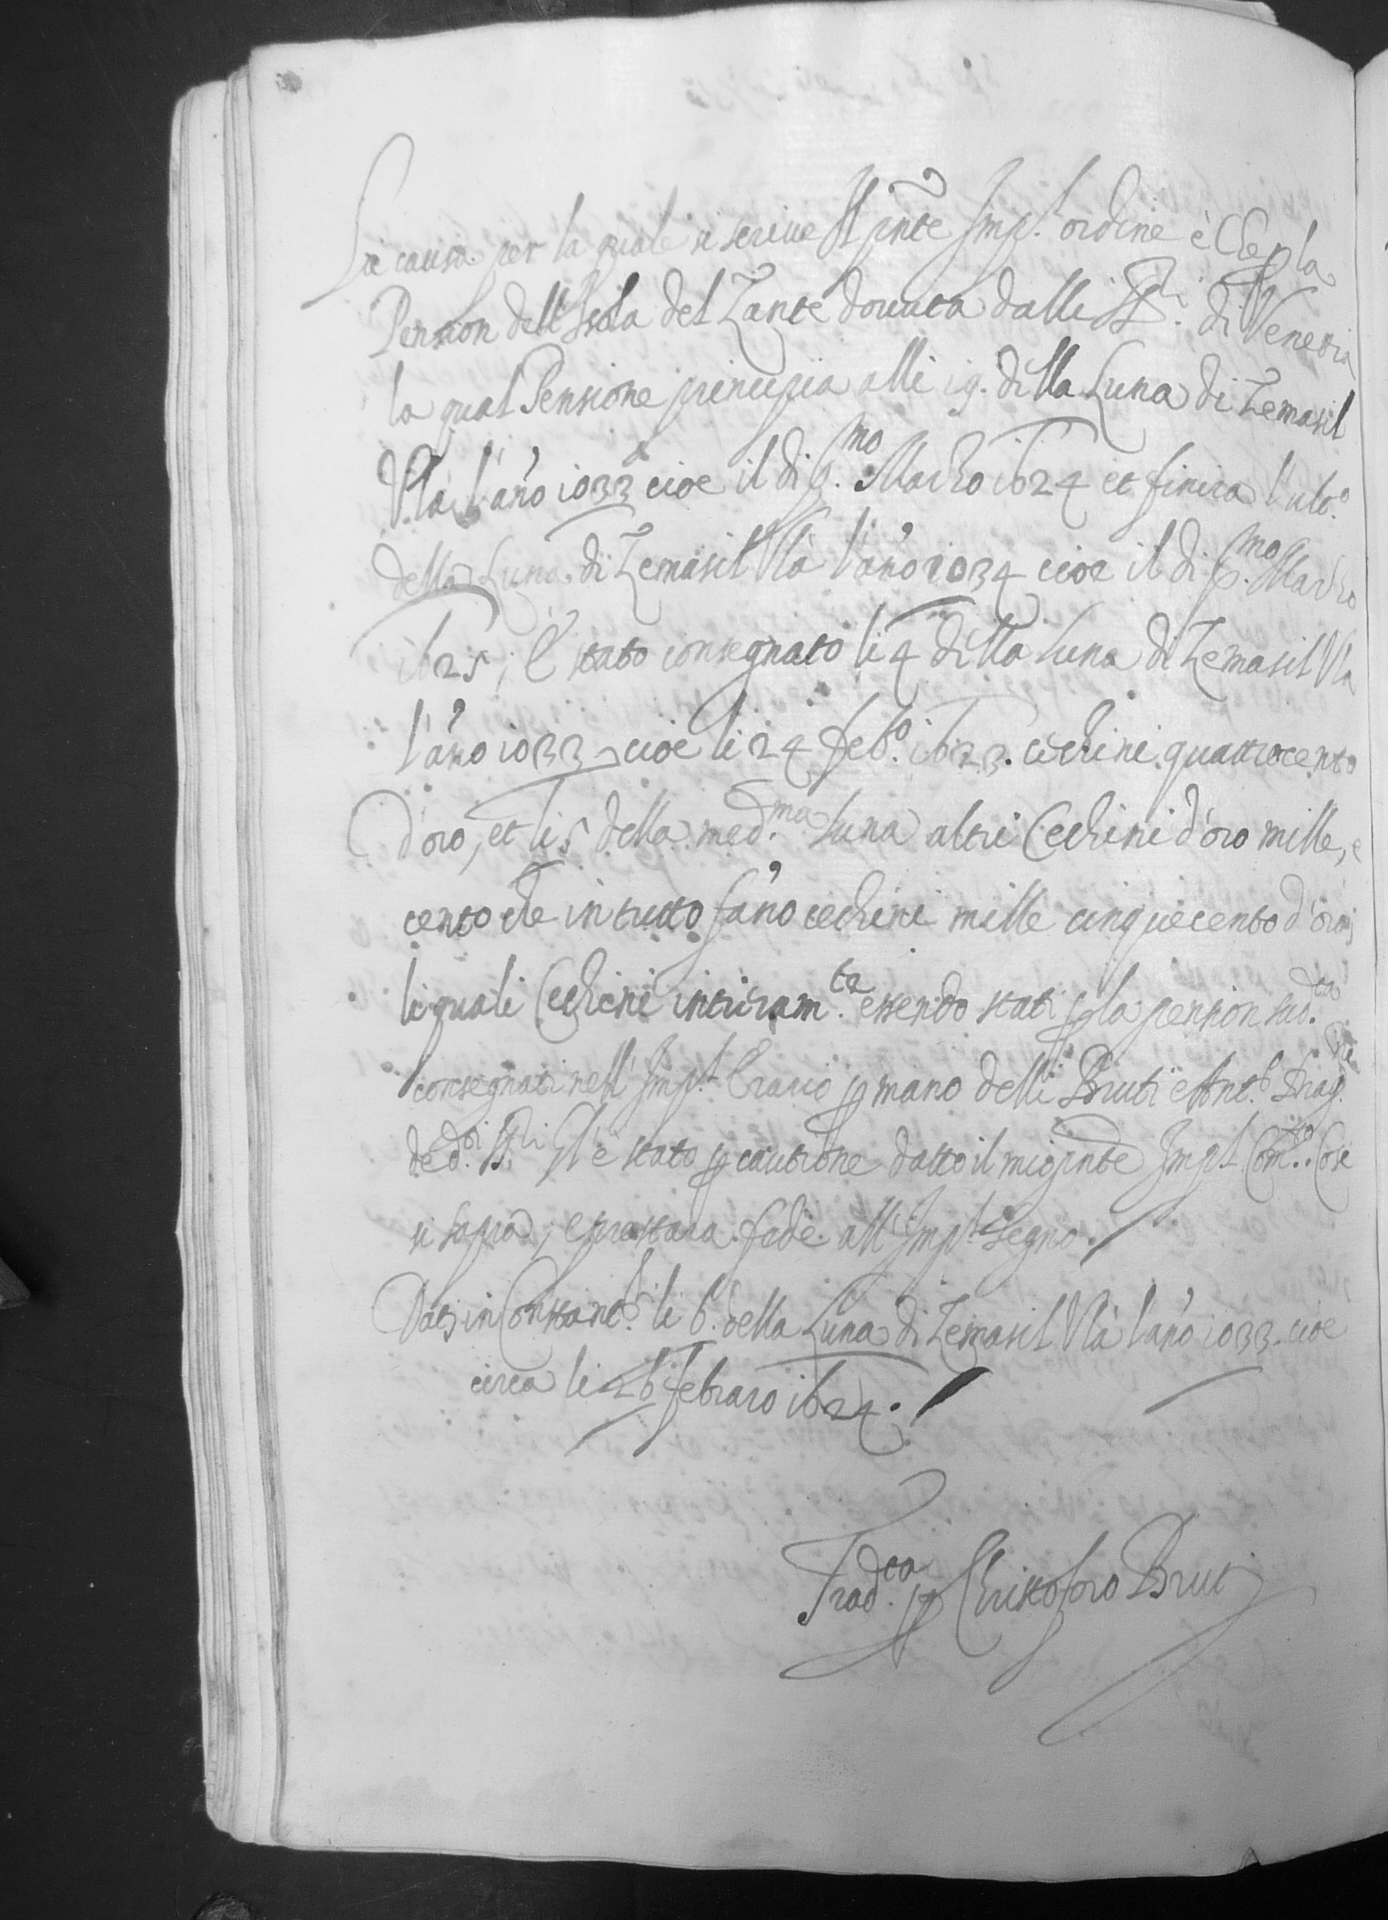 La causa per la quale si scriue Il pnte Imp.l ordine è Che p la
Pension dell'Isola del Zante douuta dalli SS.ri di Venetia
la qual Pensione principia alli 19. della Luna di Zemasil
Vla l'año 1033 cioe il di p.mo Marzo 1624 et finira l'ult.o
della Luna di Zemasil Vla l'año 1034 cioe il di p.mo Marzo
1625; É stato consegnato li 4 della Luna di Zemasil Vla
l'año 1033 cioe li 24 feb.o 1623. cechini quattrocento
d'oro, et li 5 della med.ma Luna altri Cechini d'oro mille, e
cento che in tutto fano cechini mille cinquecento d'oro;
li quali Cechini intieram.te essendo stati p la pension sud.ta
consegnati nell' Imp.l Erario p mano delli Bruti e Ant.o Drag.ni
de d.i SS.ri gl'è stato p cautione datto il mio pnte Imp.l Com.to Cose
si sapra, e prestara fede all Imp.l segno.
Dat in Constant.li li 6. della Luna di Zemasil Vla l'año 1033. cioe
circa li 26 febraro 1624.
Trad.ta p Christoforo Bruti